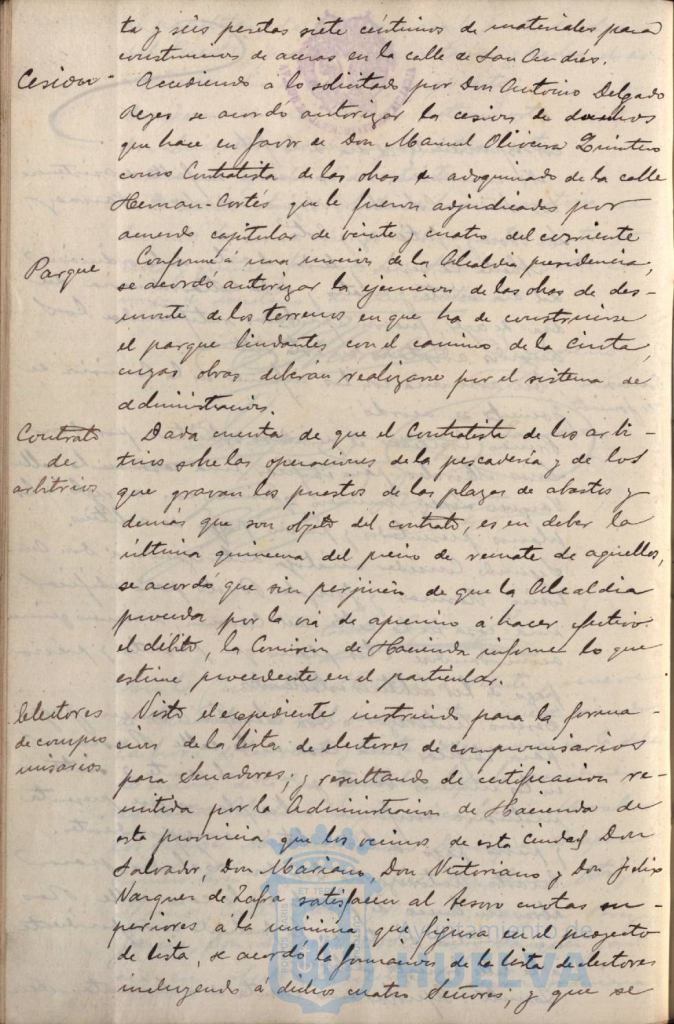 ta y seis pesetas siete céntimos de materiales para
construcción de aceras en la calle de San Andrés.
Cesión-
Accediendo á lo solicitado por Don Antonio Delgado
Reyes se acordó autorizar la cesión de derechos
que hace en favor de Don Manuel Olivera Quintero
como Contratista de las obras de adoquinado de la calle
Hernan-Cortés que le fueron adjudicadas por
acuerdo capitular de veinte y cuatro del corriente
Parque
Conforme á una moción de la Alcaldia presidencia,
se acordó autorizar la ejecucion de las obras de des-
monte de los terrenos en que ha de construirse
el parque lindantes con el camino de la Cinta,
cuyas obras deberán realizarse por el sistema de
administración.
Contrato
de
arbitrios
Dada cuenta de que el Contratista de los arbi-
trios sobre las operaciones de la pescadería y de los
que gravan los puestos de las plazas de abastos y
demás que son objeto del contrato, es en deber la
última quincena del precio de remate de aquellos,
se acordó que sin perjuicio de que la Alcaldia
proceda por la vía de apremio á hacer efectivo
el débito, la Comisión de Hacienda informe lo que
estime procedente en el particular.
Electores
de compro
misarios
Visto el expediente instruido para la forma-
ción de la lista de electores de compromisarios
para Senadores; y resultando de certificacion re-
mitida por la Administracion de Hacienda de
esta provincia que los vecinos de esta Ciudad Don
Salvador, Don Mariano, Don Victoriano y Don Felix
Vazquez de Zafra satisfacen al tesoro cuotas su-
periores á la minima que figura en el proyecto
de lista, se acordó la formación de la lista de electores
incluyendo á dichos cuatro Señores; y que se
HUELVA